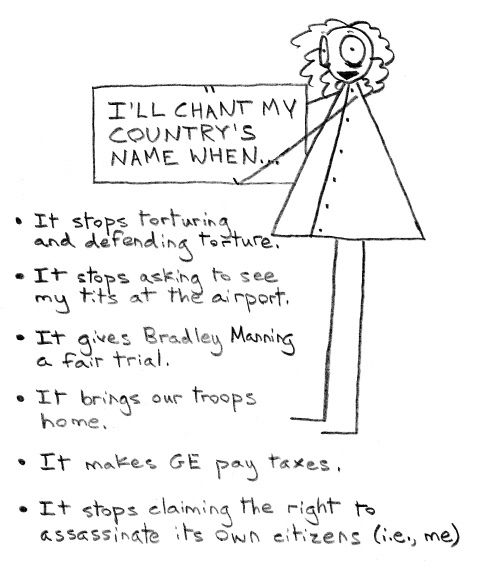 I'LL CHANT MY
COUNTRY'S
NAME WHEN...
• It stops torturing
and defending torture.
• It stops asking to see
my tits at the airport.
• It gives Bradley Manning
a fair trial.
• It brings our troops
home.
• It makes GE pay taxes.
• It stops claiming the right to
assassinate its own citizens (i.e., me)